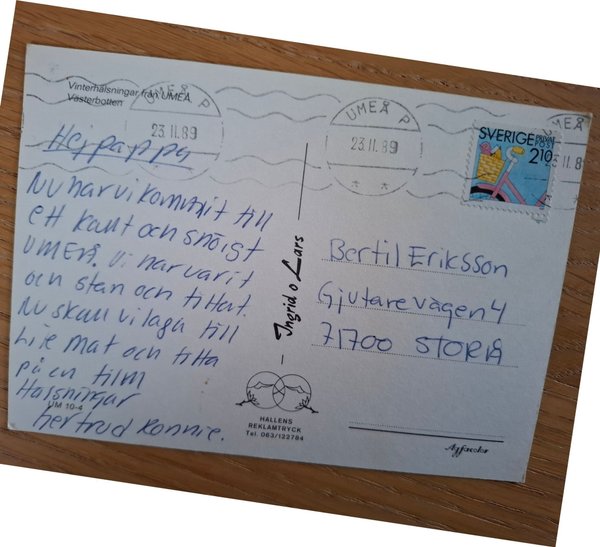 Vinterhälsningar från UMEÅ
Västerbotten
UMEÅ P
23.11.89
UMEÅ P
23.11.89
MEÅ
23.11.8
SVERIGE PRIVAT
POST
210
Hejpappa
Nu har vi kommit till
ett kallt och snöigt
UMEÅ. Vi har varit
och stan och tittat.
Nu skall vi laga till
Lite mat och titta
på en film
Hälsningar
Gertrud Connie.
UM 10-4
Ingrid o Lars
HALLENS
REKLAMTRYCK
Tel. 063/122784
Bertil Eriksson
Gjutare vägen 4
71700 STORÅ
Agfacolor